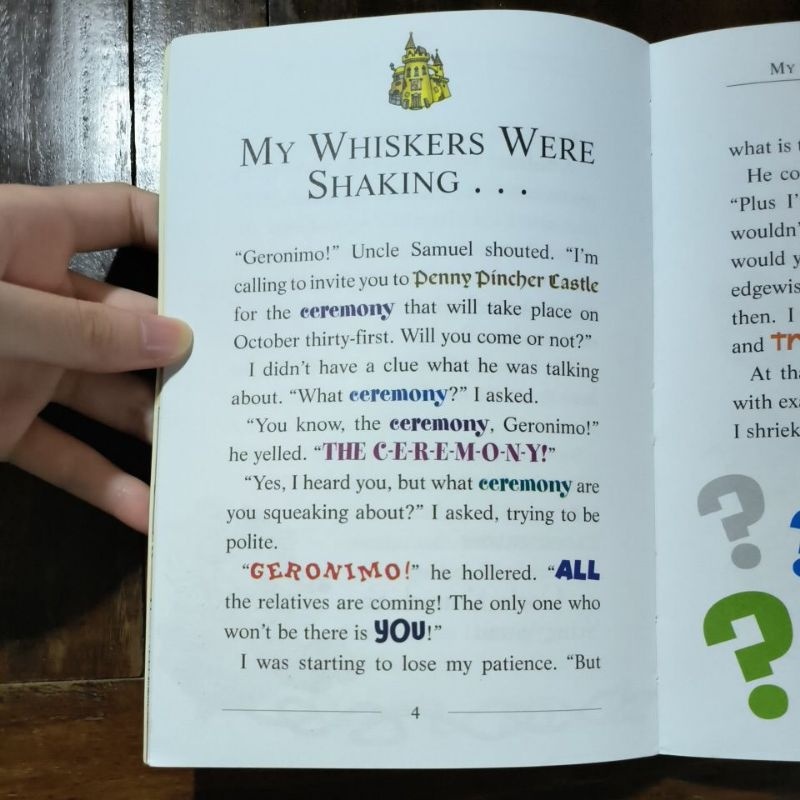 MY WHISKERS WERE
SHAKING . . .
“Geronimo!” Uncle Samuel shouted. “I’m
calling to invite you to Penny Pincher Castle
for the ceremony that will take place on
October thirty-first. Will you come or not?”
I didn’t have a clue what he was talking
about. “What ceremony?” I asked.
“You know, the ceremony, Geronimo!”
he yelled. “THE C-E-R-E-M-O-N-Y!”
“Yes, I heard you, but what ceremony are
you squeaking about?” I asked, trying to be
polite.
“GERONIMO!” he hollered. “ALL
the relatives are coming! The only one who
won’t be there is YOU!”
I was starting to lose my patience. “But
4
MY
what is
He
“Plus
would
edgewis
then. I
and
At
with
I shriek
? ? ?